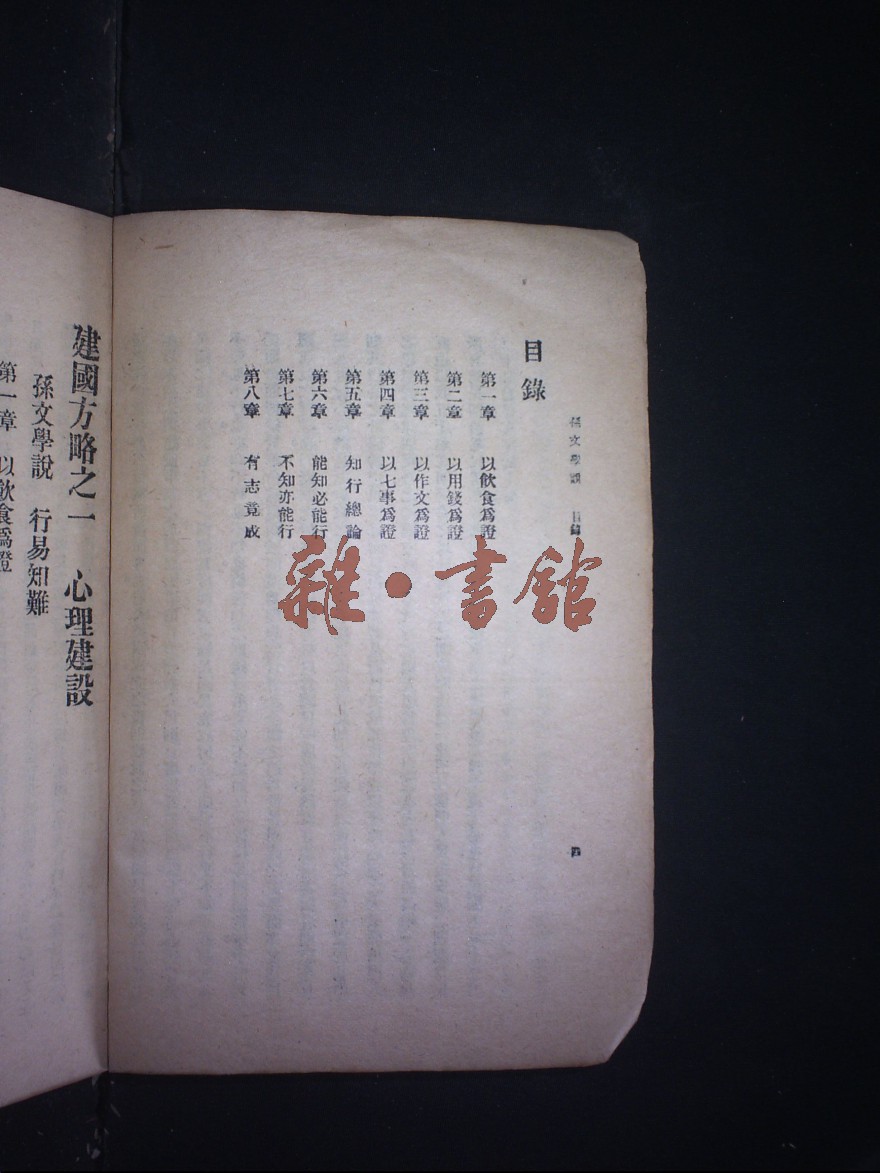 孫文學說 目錄
目錄
第一章 以飲食爲證
第二章 以用錢爲證
第三章 以作文爲證
第四章 以七事爲證
第五章 知行總論
第六章 能知必能行
第七章 不知亦能行
第八章 有志竟成
雜·書館
建國方略之一 心理建設
孫文學說 行易知難
第一章 以飲食爲證